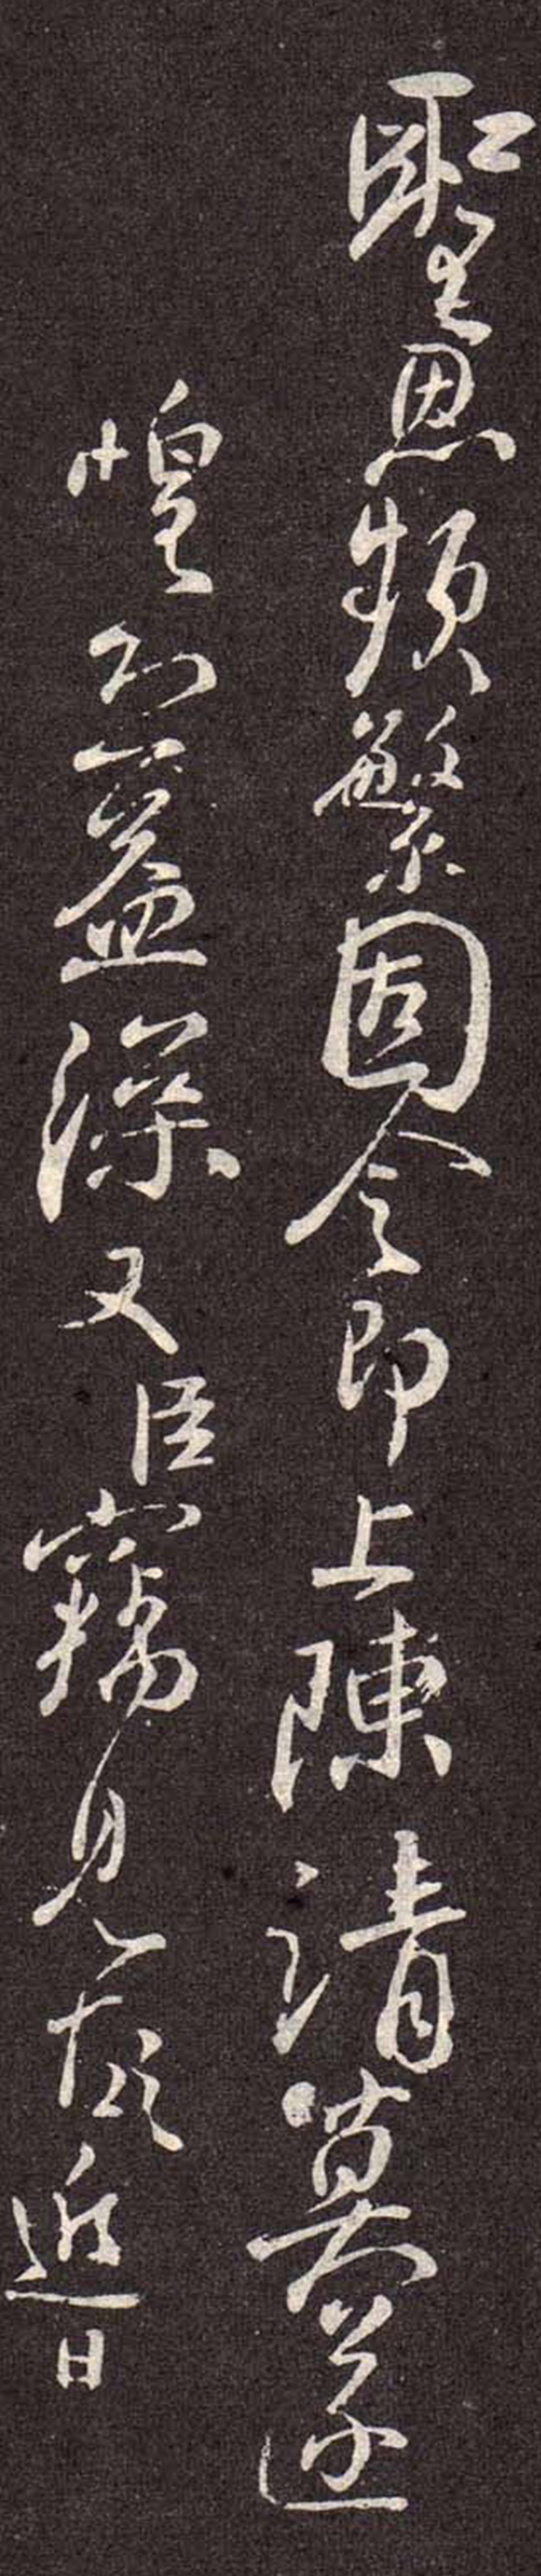 聖恩頻繁固令即上陳請莫遂
惶益深又臣竊見近日